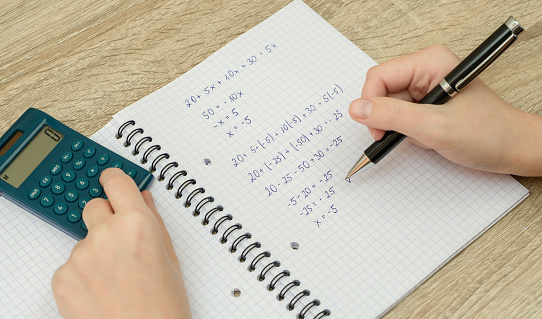 20 + 5x + 10x + 30 = 5x
50 = -10x
-x = 5
x = -5
20 + 5·(-5) + 10(-5) + 30 = 5(-5)
20 + (-25) + (-50) + 30 = -25
20 - 25 - 50 + 30 = -25
-5 - 20 = -25
-25 = -25
x = -5